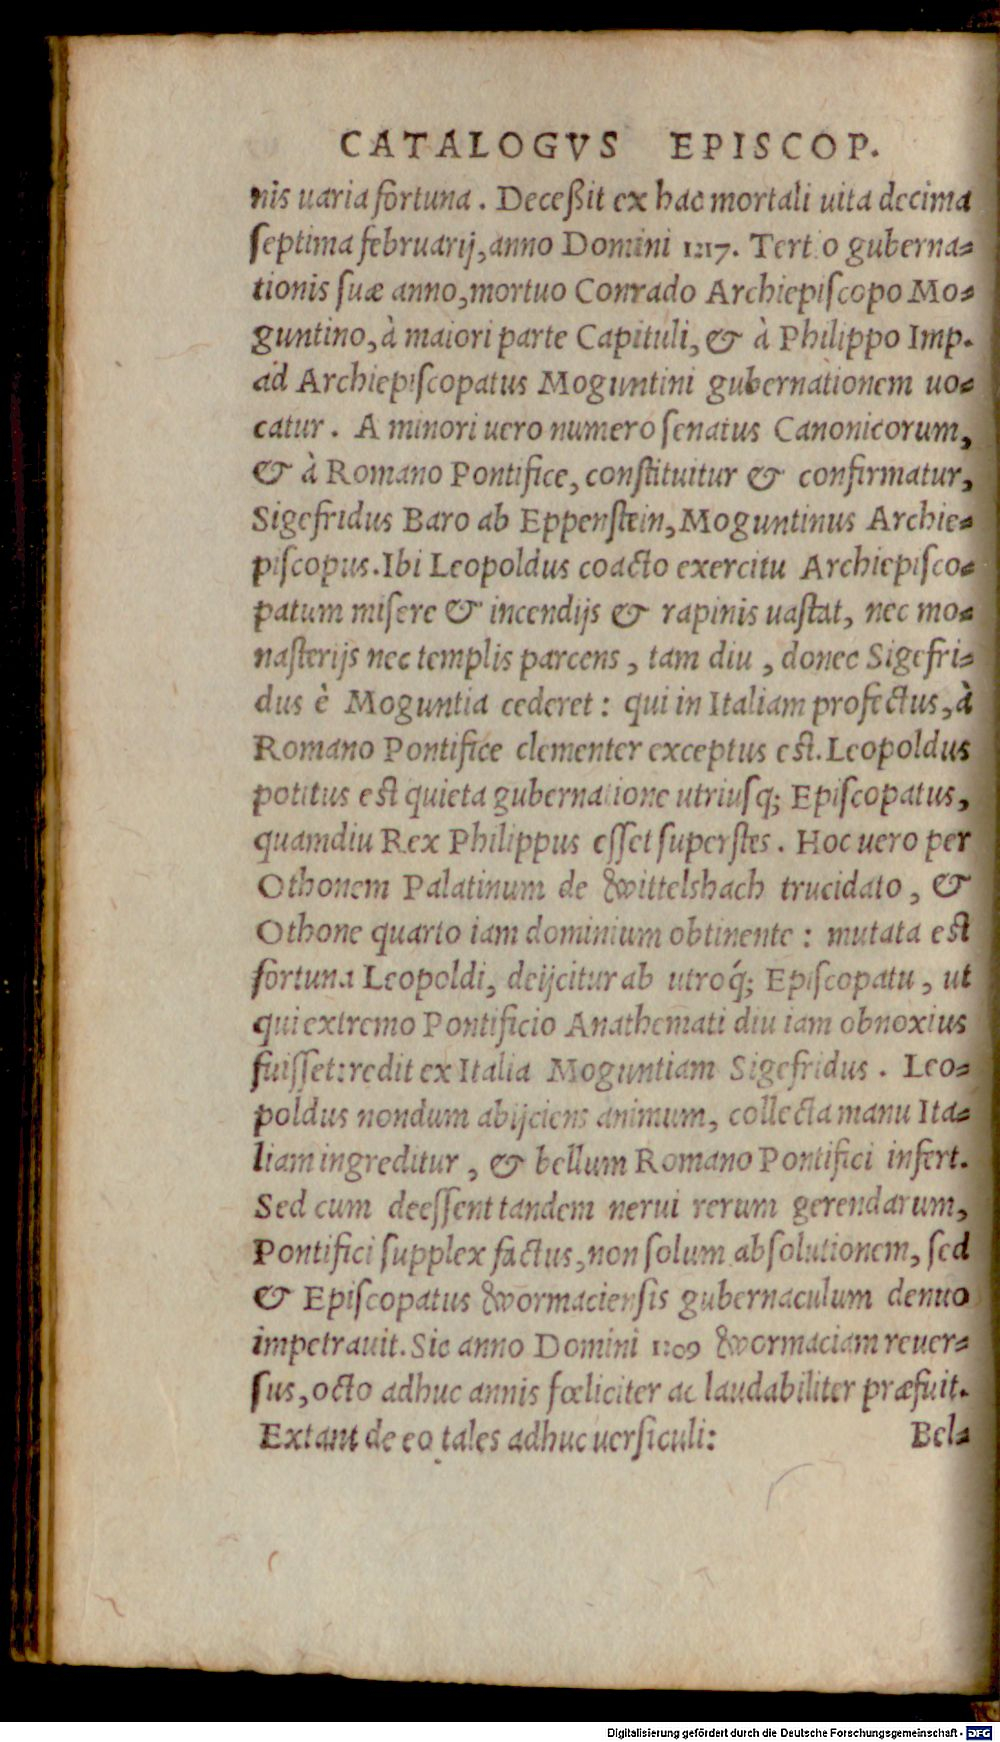 CATALOGVS EPISCOP.
nis uaria fortuna. Deceßit ex hac mortali uita decima
ſeptima februarij, anno Domini 1217. Tertio guberna-
tionis ſuæ anno, mortuo Conrado Archiepiſcopo Mo-
guntino, à maiori parte Capituli, & à Philippo Imp.
ad Archiepiſcopatus Moguntini gubernationem uo-
catur. A minori uero numero ſenatus Canonicorum,
& à Romano Pontifice, conſtituitur & confirmatur,
Sigefridus Baro ab Eppenſtein, Moguntinus Archie-
piſcopus. Ibi Leopoldus coacto exercitu Archiepiſco-
patum miſere & incendijs & rapinis uaſtat, nec mo-
naſterijs nec templis parcens, tam diu, donec Sigefri-
dus è Moguntia cederet: qui in Italiam profectus, à
Romano Pontifice clementer exceptus eſt. Leopoldus
potitus eſt quieta gubernatione utriuſq; Epiſcopatus,
quamdiu Rex Philippus eſſet ſuperſtes. Hoc uero per
Othonem Palatinum de Wittelsbach trucidato, &
Othone quarto iam dominium obtinente: mutata eſt
fortuna Leopoldi, deijcitur ab utroq́; Epiſcopatu, ut
qui extremo Pontificio Anathemati diu iam obnoxius
fuiſſet: redit ex Italia Moguntiam Sigefridus. Leo-
poldus nondum abijciens animum, collecta manu Ita-
liam ingreditur, & bellum Romano Pontifici infert.
Sed cum deeſſent tandem nerui rerum gerendarum,
Pontifici ſupplex factus, non ſolum abſolutionem, ſed
& Epiſcopatus Wormacienſis gubernaculum denuo
impetrauit. Sic anno Domini 1209 Wormaciam reuer-
ſus, octo adhuc annis fœliciter ac laudabiliter præfuit.
Extant de eo tales adhuc uerſiculi: Bel-
Digitalisierung gefördert durch die Deutsche Forschungsgemeinschaft - DFG